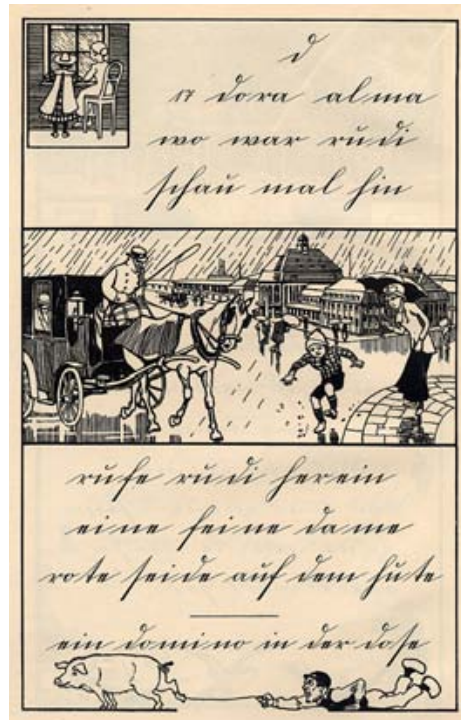 d
dora alma
wo war rudi
schau mal hin
rufe rudi herein
eine feine dame
rote seide auf dem hute
ein domino in der dose